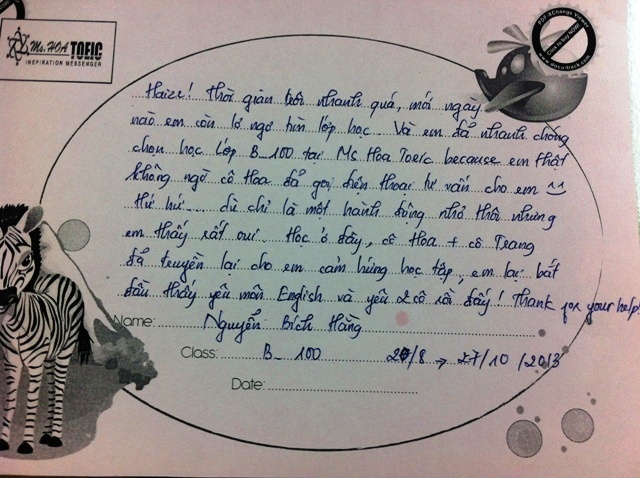 Ms. HOA TOEIC
INSPIRATION MESSENGER
PDF-XChange Viewer
Click to buy NOW!
www.docu-track.com
Haize! Thời gian trôi nhanh quá, mới ngày
nào em còn lơ ngơ tìm lớp học. Và em đã nhanh chóng
chọn học lớp B_100 tại Ms Hoa Toeic because em thật
không ngờ cô Hoa đã gọi điện thoại tư vấn cho em ^^
Hứ hứ... dù chỉ là một hành động nhỏ thôi nhưng
em thấy rất vui. Học ở đây, cô Hoa + cô Trang
đã truyền lại cho em cảm hứng học tập, em lại bắt
đầu thấy yêu môn English và yêu 2 cô rồi đấy! Thank for your help!
Name: Nguyễn Bích Hằng
Class: B_100 /8 → 27/10/2013
Date: